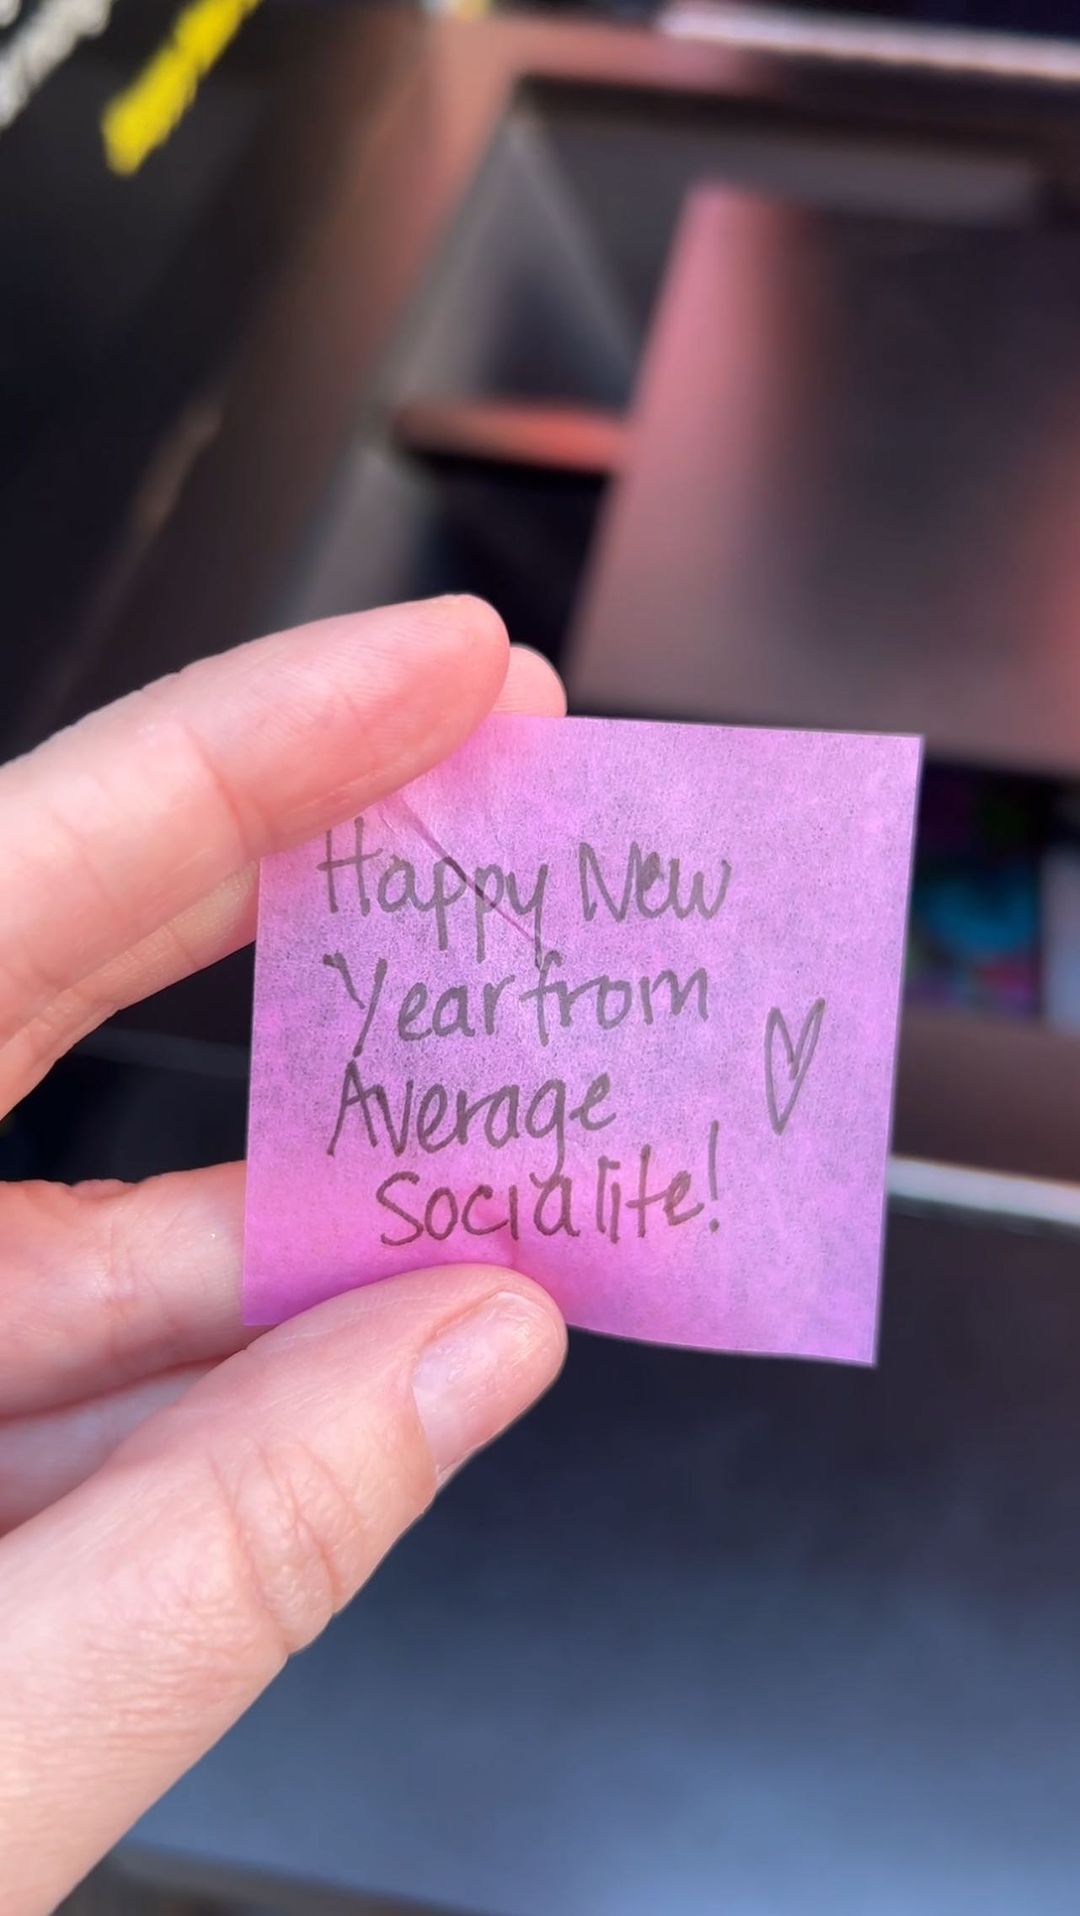 Happy New
Year from
Average
Socialite!